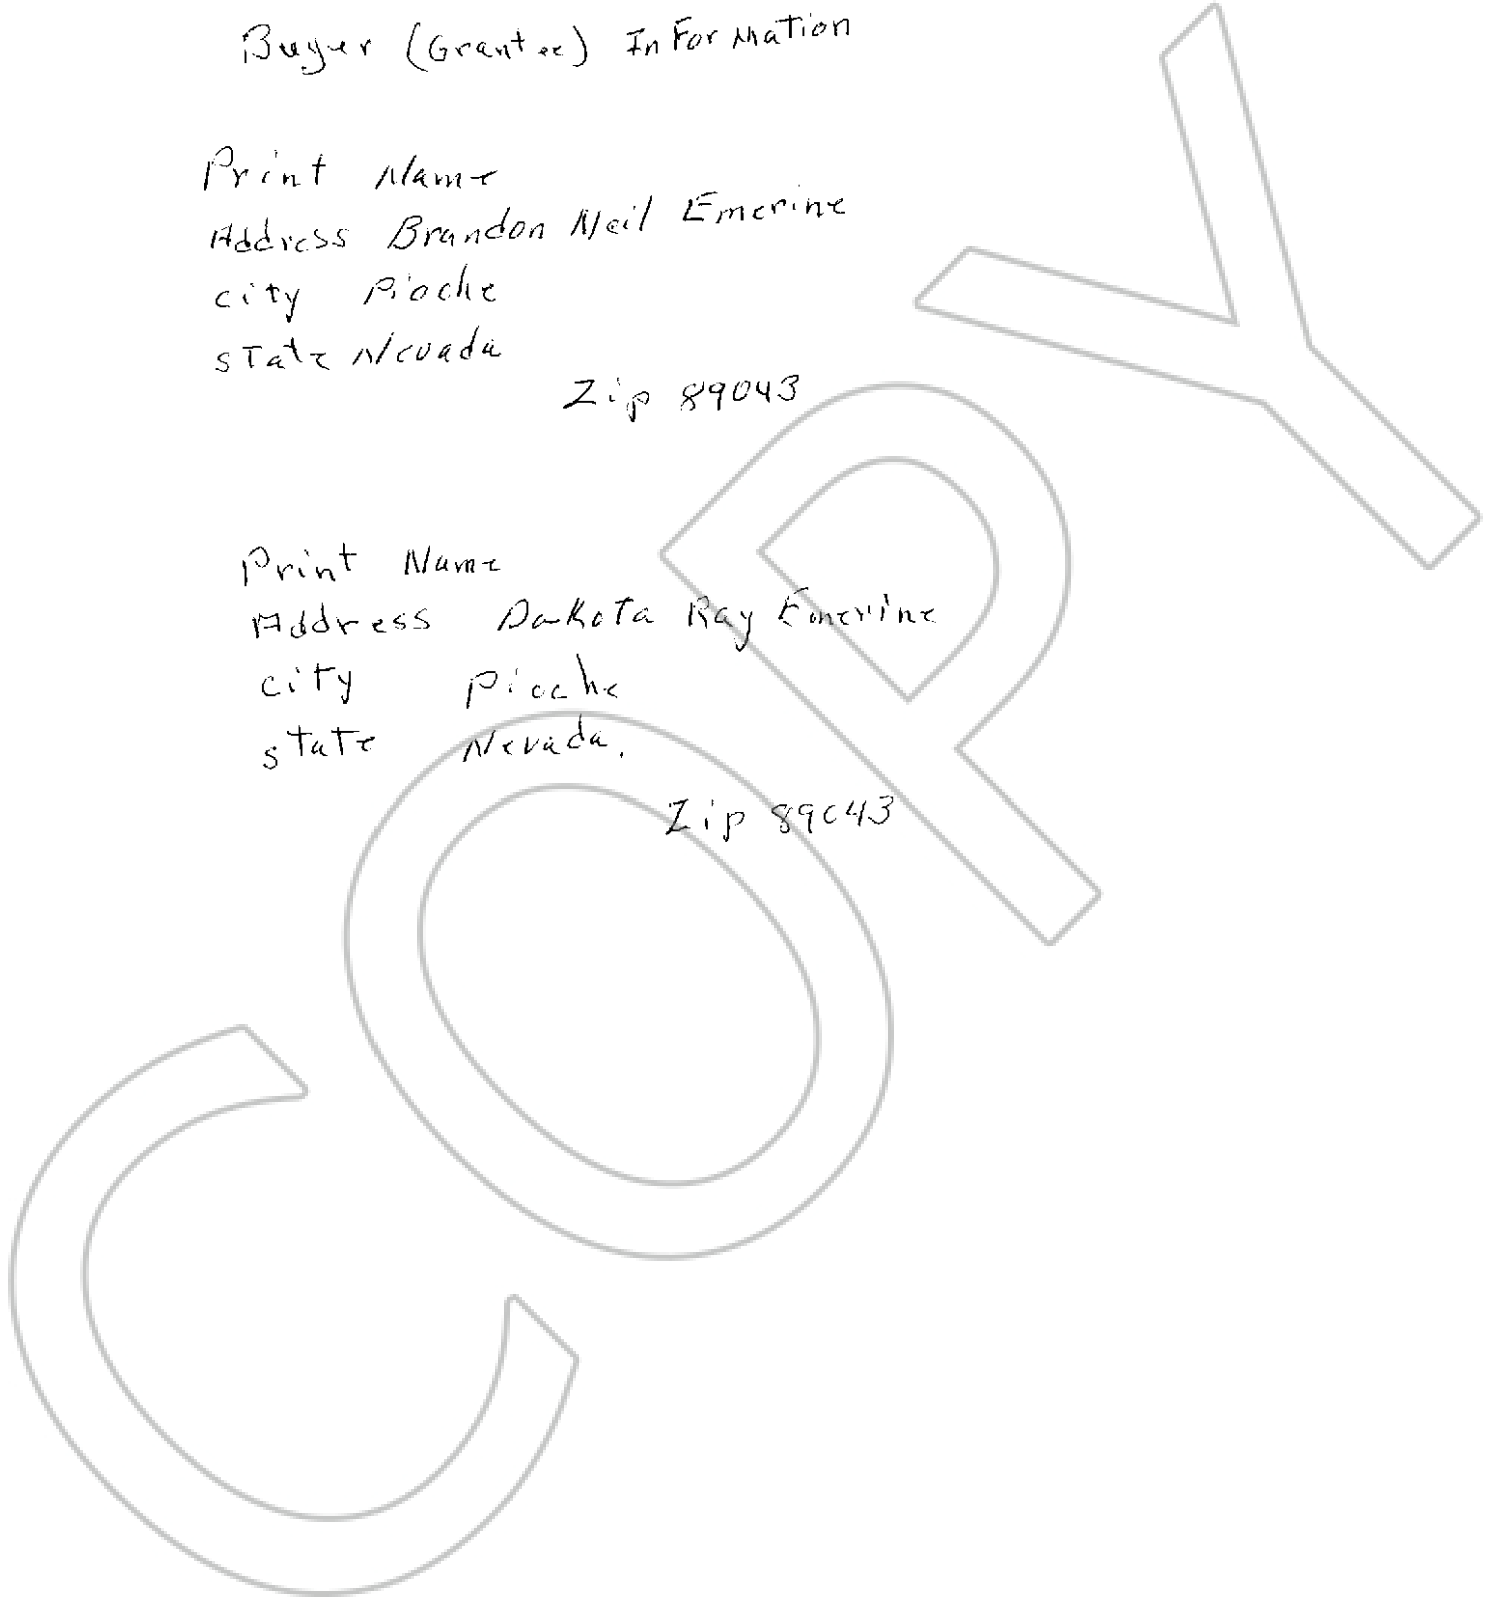 Buyer (Grantee) InForMation
Print Name
Address Brandon Neil Emerine
city Pioche
state Nevada
Zip 89043
Print Name
Address Dakota Ray Emerine
city Pioche
state Nevada.
Zip 89043
COPY